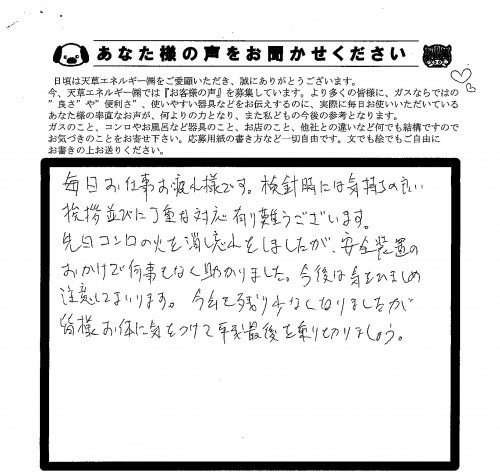 あなた様の声をお聞かせください
日頃は天草エネルギー㈱をご愛顧いただき、誠にありがとうございます。
今、天草エネルギー㈱では『お客様の声』を募集しています。より多くの皆様に、ガスならではの
"良さ"や"便利さ"、使いやすい器具などをお伝えするのに、実際に毎日お使いいただいている
あなた様の率直なお声が、何よりの力となり、また私どもの今後の参考となります。
ガスのこと、コンロやお風呂など器具のこと、お店のこと、他社との違いなど何でも結構ですので
お気づきのことをお寄せ下さい。応募用紙の書き方など一切自由です。文でも絵でもご自由に
お書きの上お送りください。
毎日お仕事お疲れ様です。検針時には気持ちの良い
挨拶並びに丁重な対応有り難うございます。
先日コンロの火を消し忘れをしましたが、安全装置の
おかげで何事もなく助かりました。今後は気をひきしめ
注意してまいります。今年も残り少なくなりましたが
皆様お体に気をつけて年末最後を乗り切りましょう。